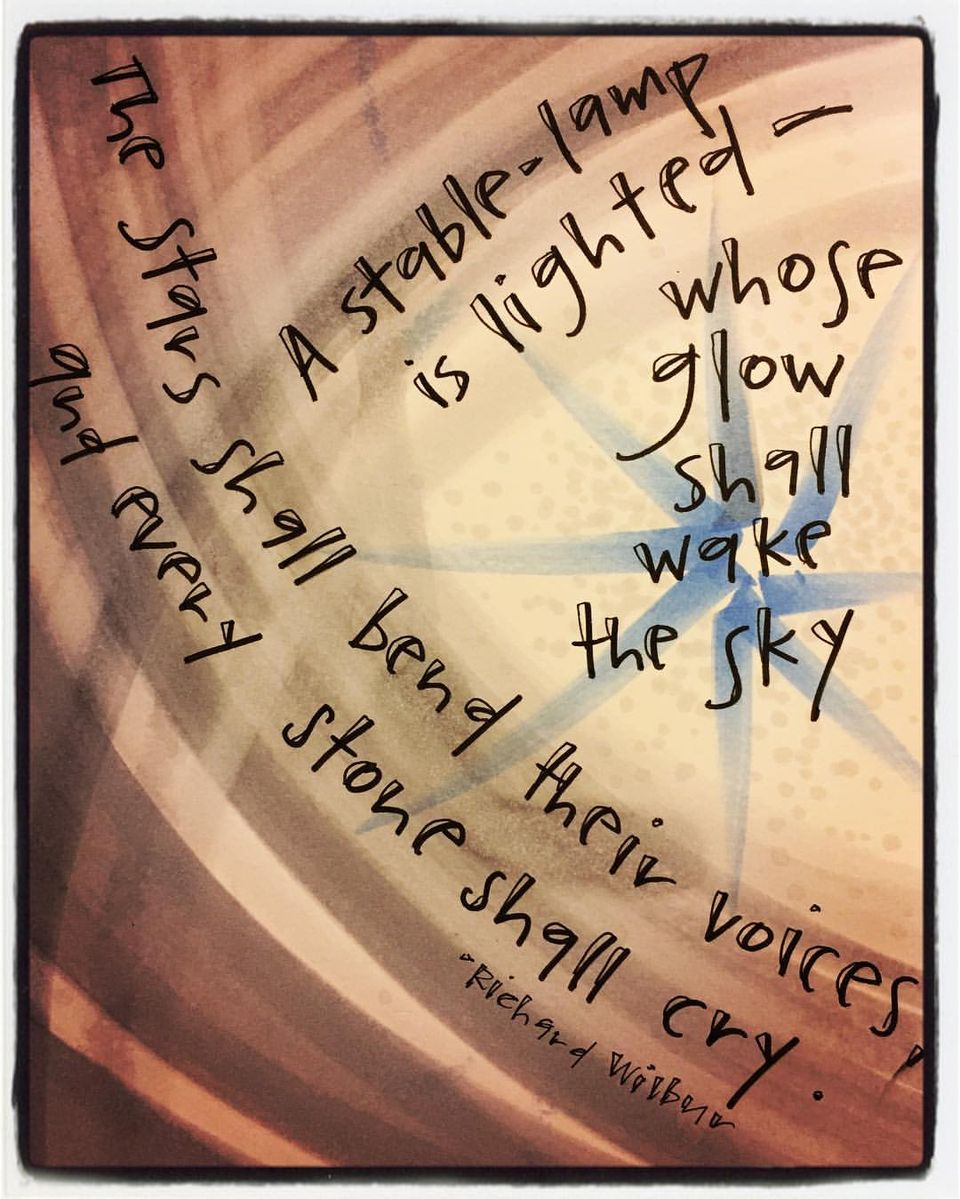 A stable-lamp
is lighted —
whose
glow
shall
wake
the sky
The stars shall bend their voices,
and every stone shall cry.
-Richard Wilbur